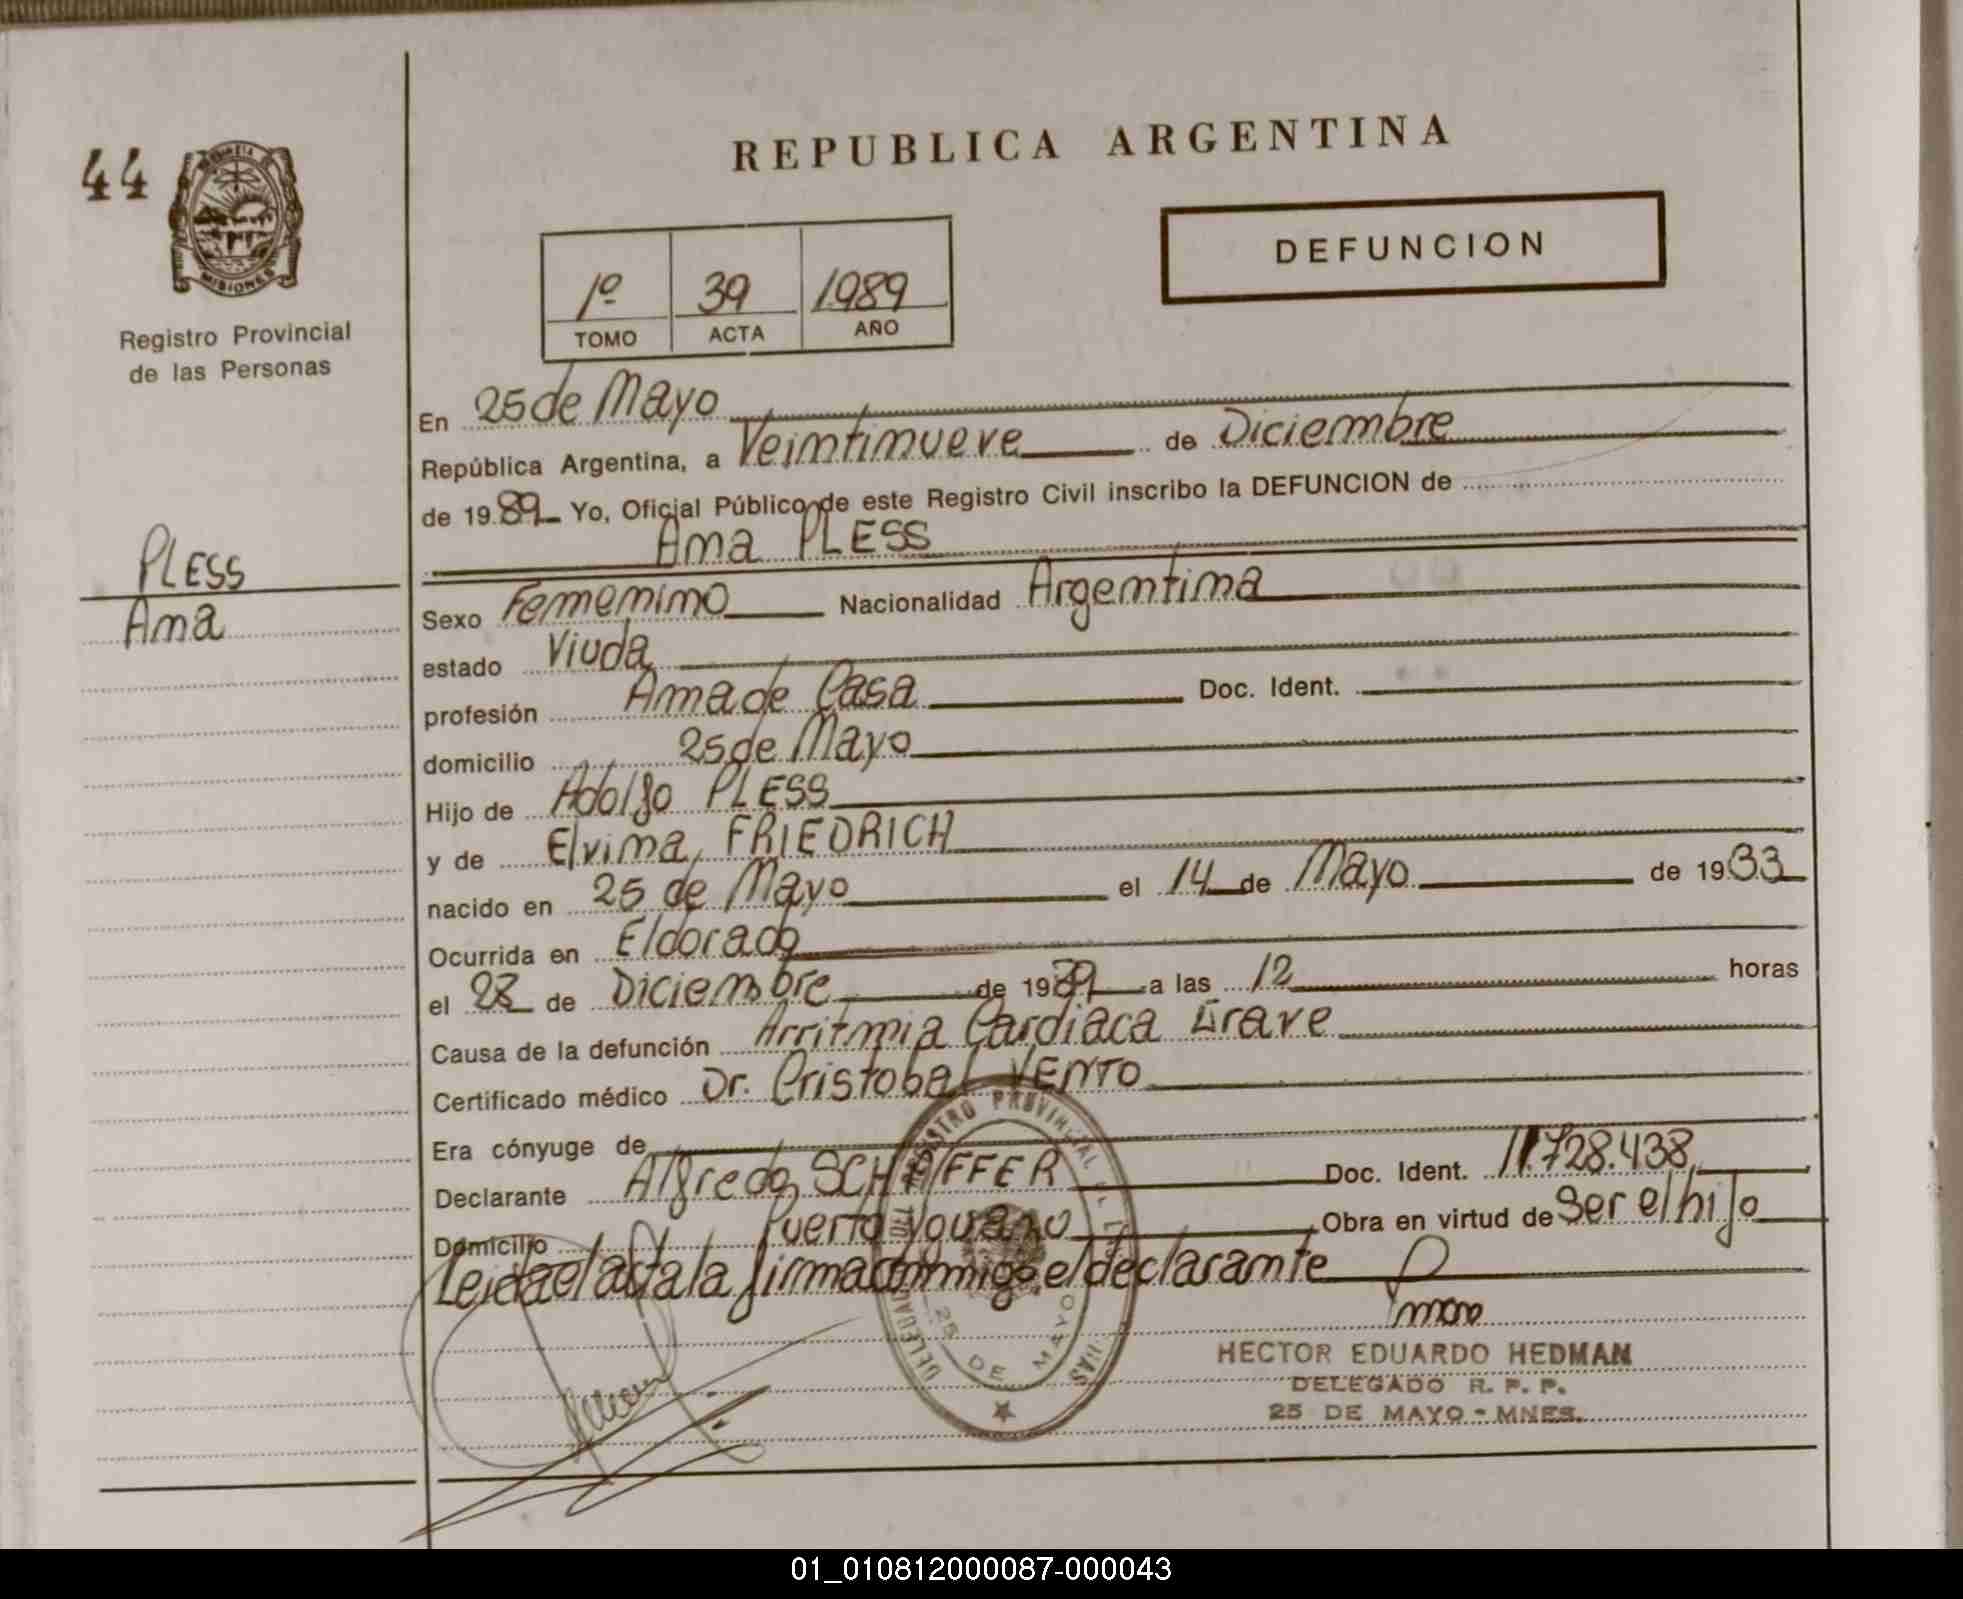 44
PROVINCIA DE
MISIONES
Registro Provincial
de las Personas
REPUBLICA ARGENTINA
1º 39 1989
TOMO ACTA AÑO
DEFUNCION
En 25 de Mayo
República Argentina, a Veintinueve de Diciembre
de 1989 Yo, Oficial Público de este Registro Civil inscribo la DEFUNCION de
Ana PLESS
PLESS
Ana
Sexo Femenino Nacionalidad Argentina
estado Viuda
profesión Ama de Casa Doc. Ident.
domicilio 25 de Mayo
Hijo de Adolfo PLESS
y de Elvina FRIEDRICH
nacido en 25 de Mayo el 14 de Mayo de 1933
Ocurrida en Eldorado
el 28 de Diciembre de 1989 a las 12 horas
Causa de la defunción Arritmia Cardiaca Grave
Certificado médico Dr. Cristobal VENTO
Era cónyuge de
Declarante Alfredo SCHAIFFER Doc. Ident. 11.728.438
Domicilio Puerto Obra en virtud de Ser el hijo
Leida el acta la firma conmigo el declarante
REGISTRO PROVINCIAL DE LAS
25 DE MAYO
HECTOR EDUARDO HEDMAN
DELEGADO R. P. P.
25 DE MAYO - MNES.
01_010812000087-000043